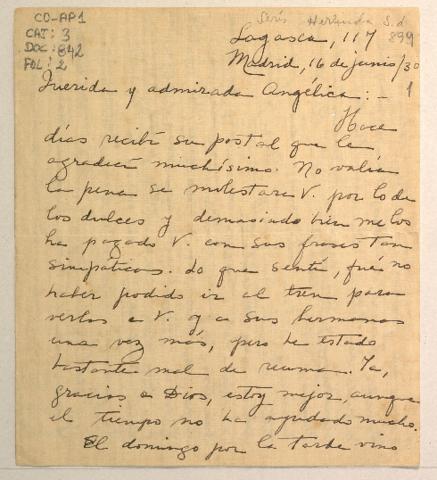 CO-AP1
CAJ: 3
DOC: 842
FOL: 2
Herlinda S.d
899
1
Lagasca, 117
Madrid, 16 de junio/30
Querida y admirada Angélica: -
Hace
días recibí su postal que le
agradecí muchísimo. No valía
la pena se molestara V. por lo de
los dulces y demasiado bien me los
ha pagado V. con sus frases tan
simpáticas. Lo que sentí, fué no
haber podido ir al tren para
verlas a V. y a sus hermanas
una vez más, pero he estado
bastante mal de reuma. Ya,
gracias a Dios, estoy mejor, aunque
el tiempo no ha ayudado mucho.
El domingo por la tarde vino